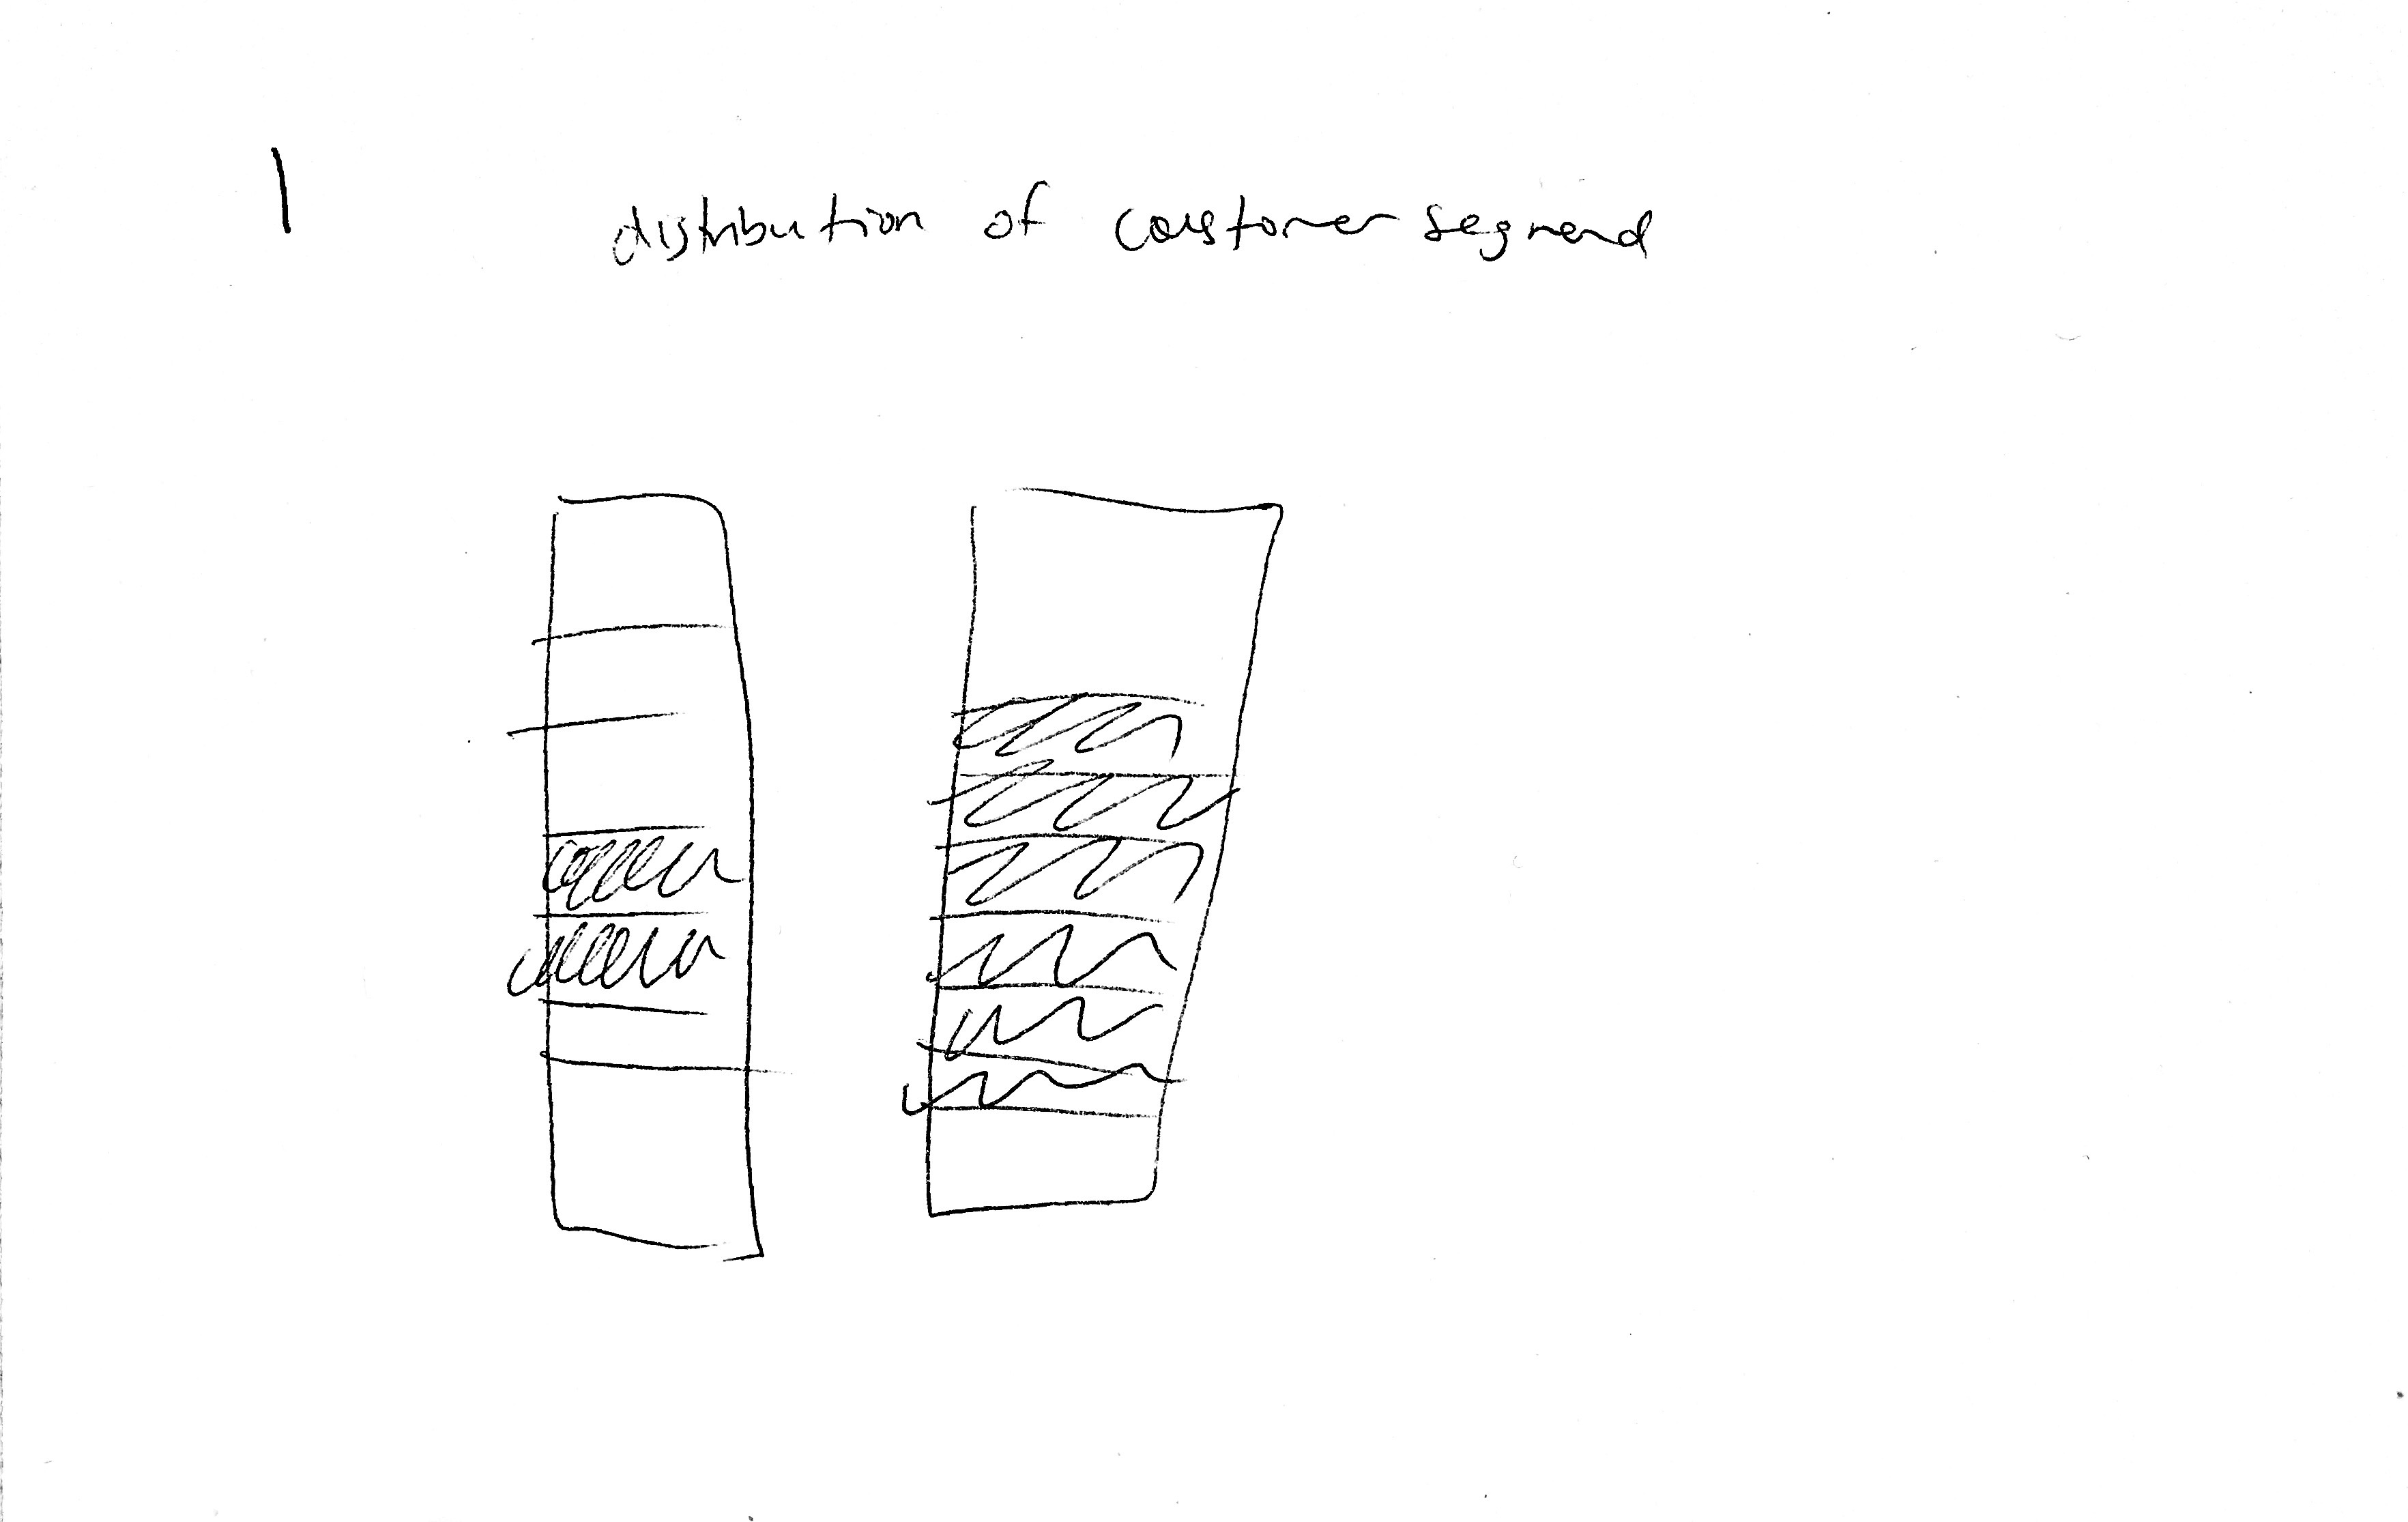 1
distribution of coustomer segmend